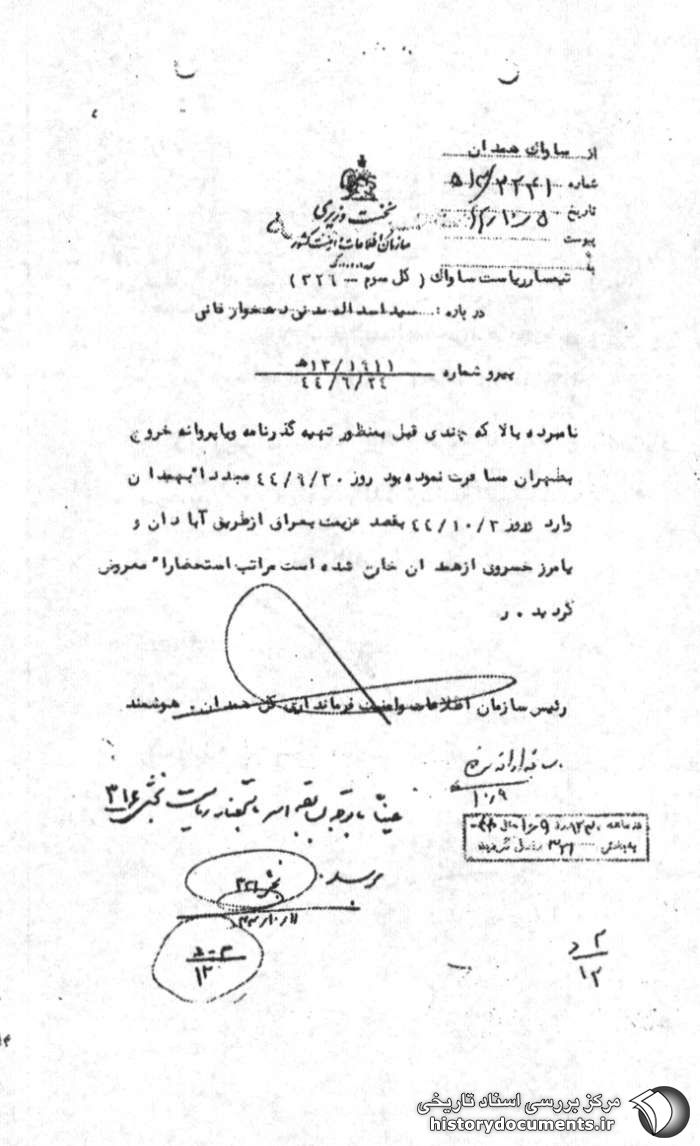 از ساواک همدان
شماره ۵۱۲/۲۲۴۱
تاریخ
پیوست
به
نخست وزیری
سازمان اطلاعات و امنیت کشور
تیمسار ریاست ساواک ( کل سوم – ۳۲۶ )
درباره : سید اسداله مدنی دهخوارقانی
پیرو شماره ۱۶۱۱/۱۲ه
۴۴/۶/۲۴
نامبرده بالا که چندی قبل بمنظور تهیه گذرنامه ویا پروانه خروج
بطهران مسافرت نموده بود روز ۴۴/۹/۳۰ مجددا" بهمدان
وارد وروز ۴۴/۱۰/۲ بقصد عزیمت بعراق از طریق آبادان و
یا مرز خسروی از همدان خارج شده است مراتب استحضارا" معروض
گردید . ر
رئیس سازمان اطلاعات وامنیت فرمانداری کل همدان . هوشمند
سابقه ارائه شود
۱۰/۹
عینا بریاست بخش ۳۱۶
برسد .
بخش ۳۲۱
۱۲
۱۲
مرکز بررسی اسناد تاریخی
historydocuments.ir